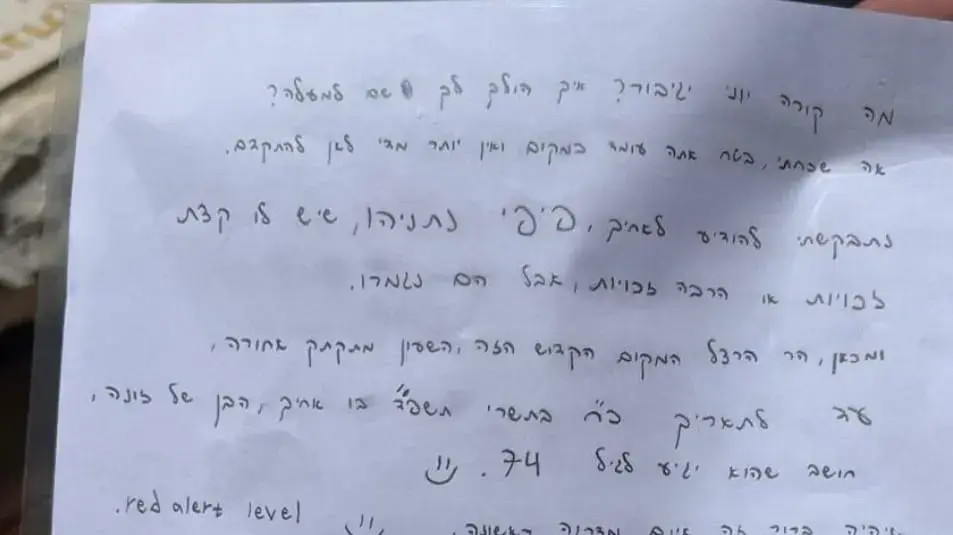 מה קורה יוני גיבור? איך הולך לך שם למעלה?
אה שכחתי, בטח אתה עומד במקום ואין יותר מדי לאן להתקדם.
נתבקשתי להודיע לאחיך, פיפי נתניהו, שיש לו קצת
זכויות או הרבה זכויות, אבל הם נגמרו.
ומכאן, הר הרצל המקום הקדוש הזה, השעון מתקתק אחורה,
עד לתאריך כ"ח בתשרי תשפ"ד בו אחיך, הבן של זונה,
חושב שהוא יגיע לגיל 74.
שיהיה ברור זה איום מדרגה ראשונה. red alert level.